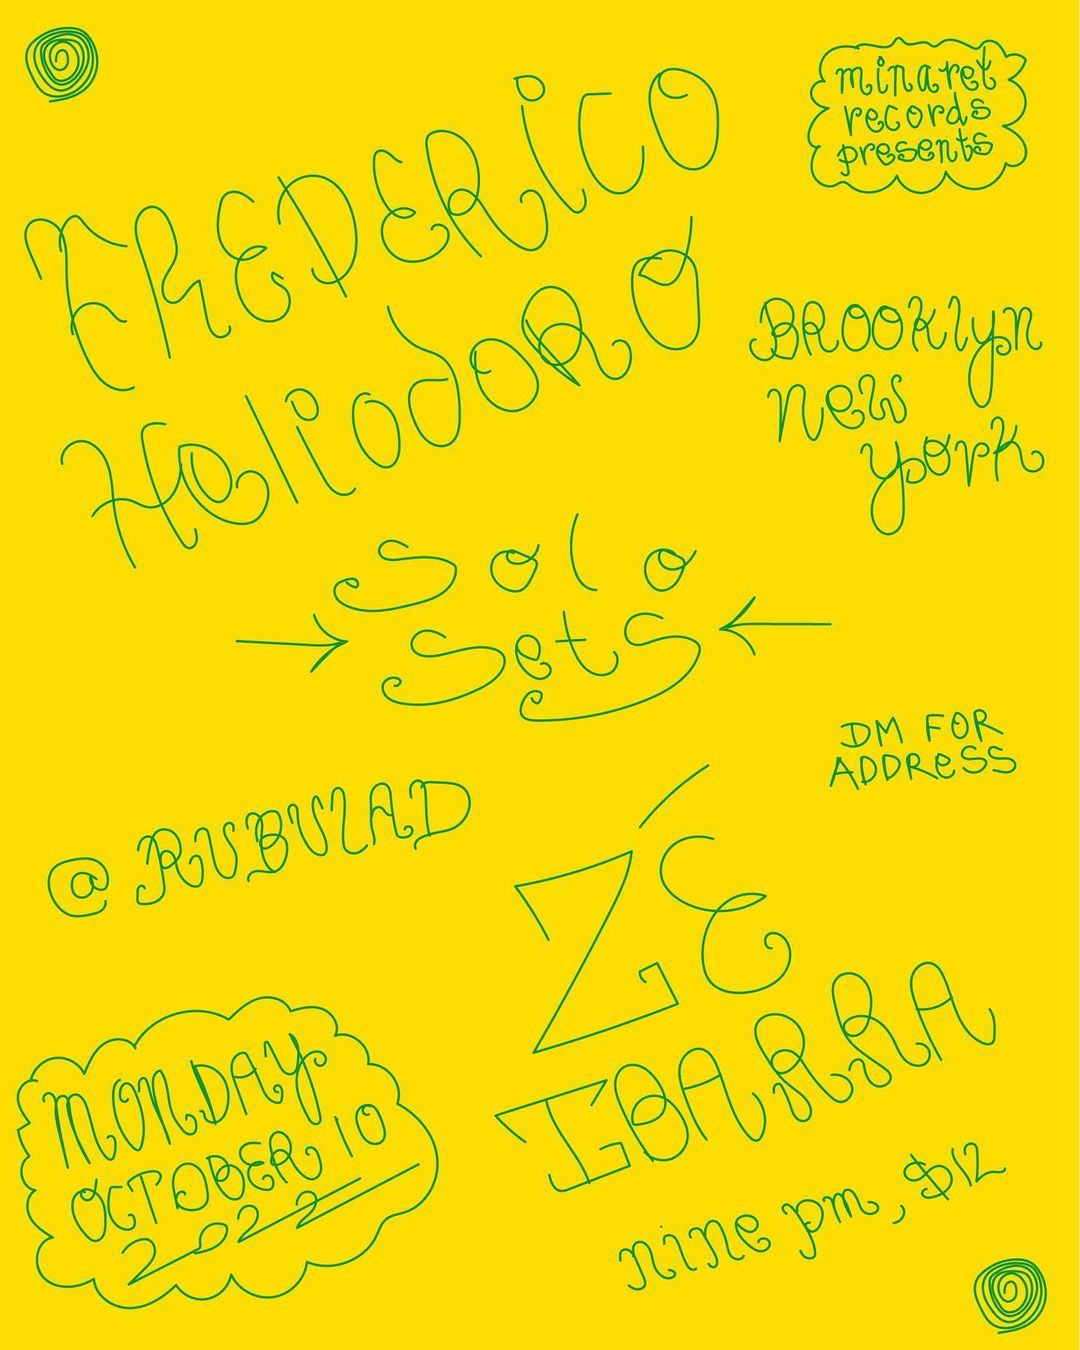 minaret
records
presents
FREDERICO
HeliodoRO
BROOKlyn
New
york
Solo
Sets
DM FOR
ADDReSS
@ RUBULAD
ZÉ
IBARRA
MONDAY
OCTOBER 10
2022
nine pm, $12